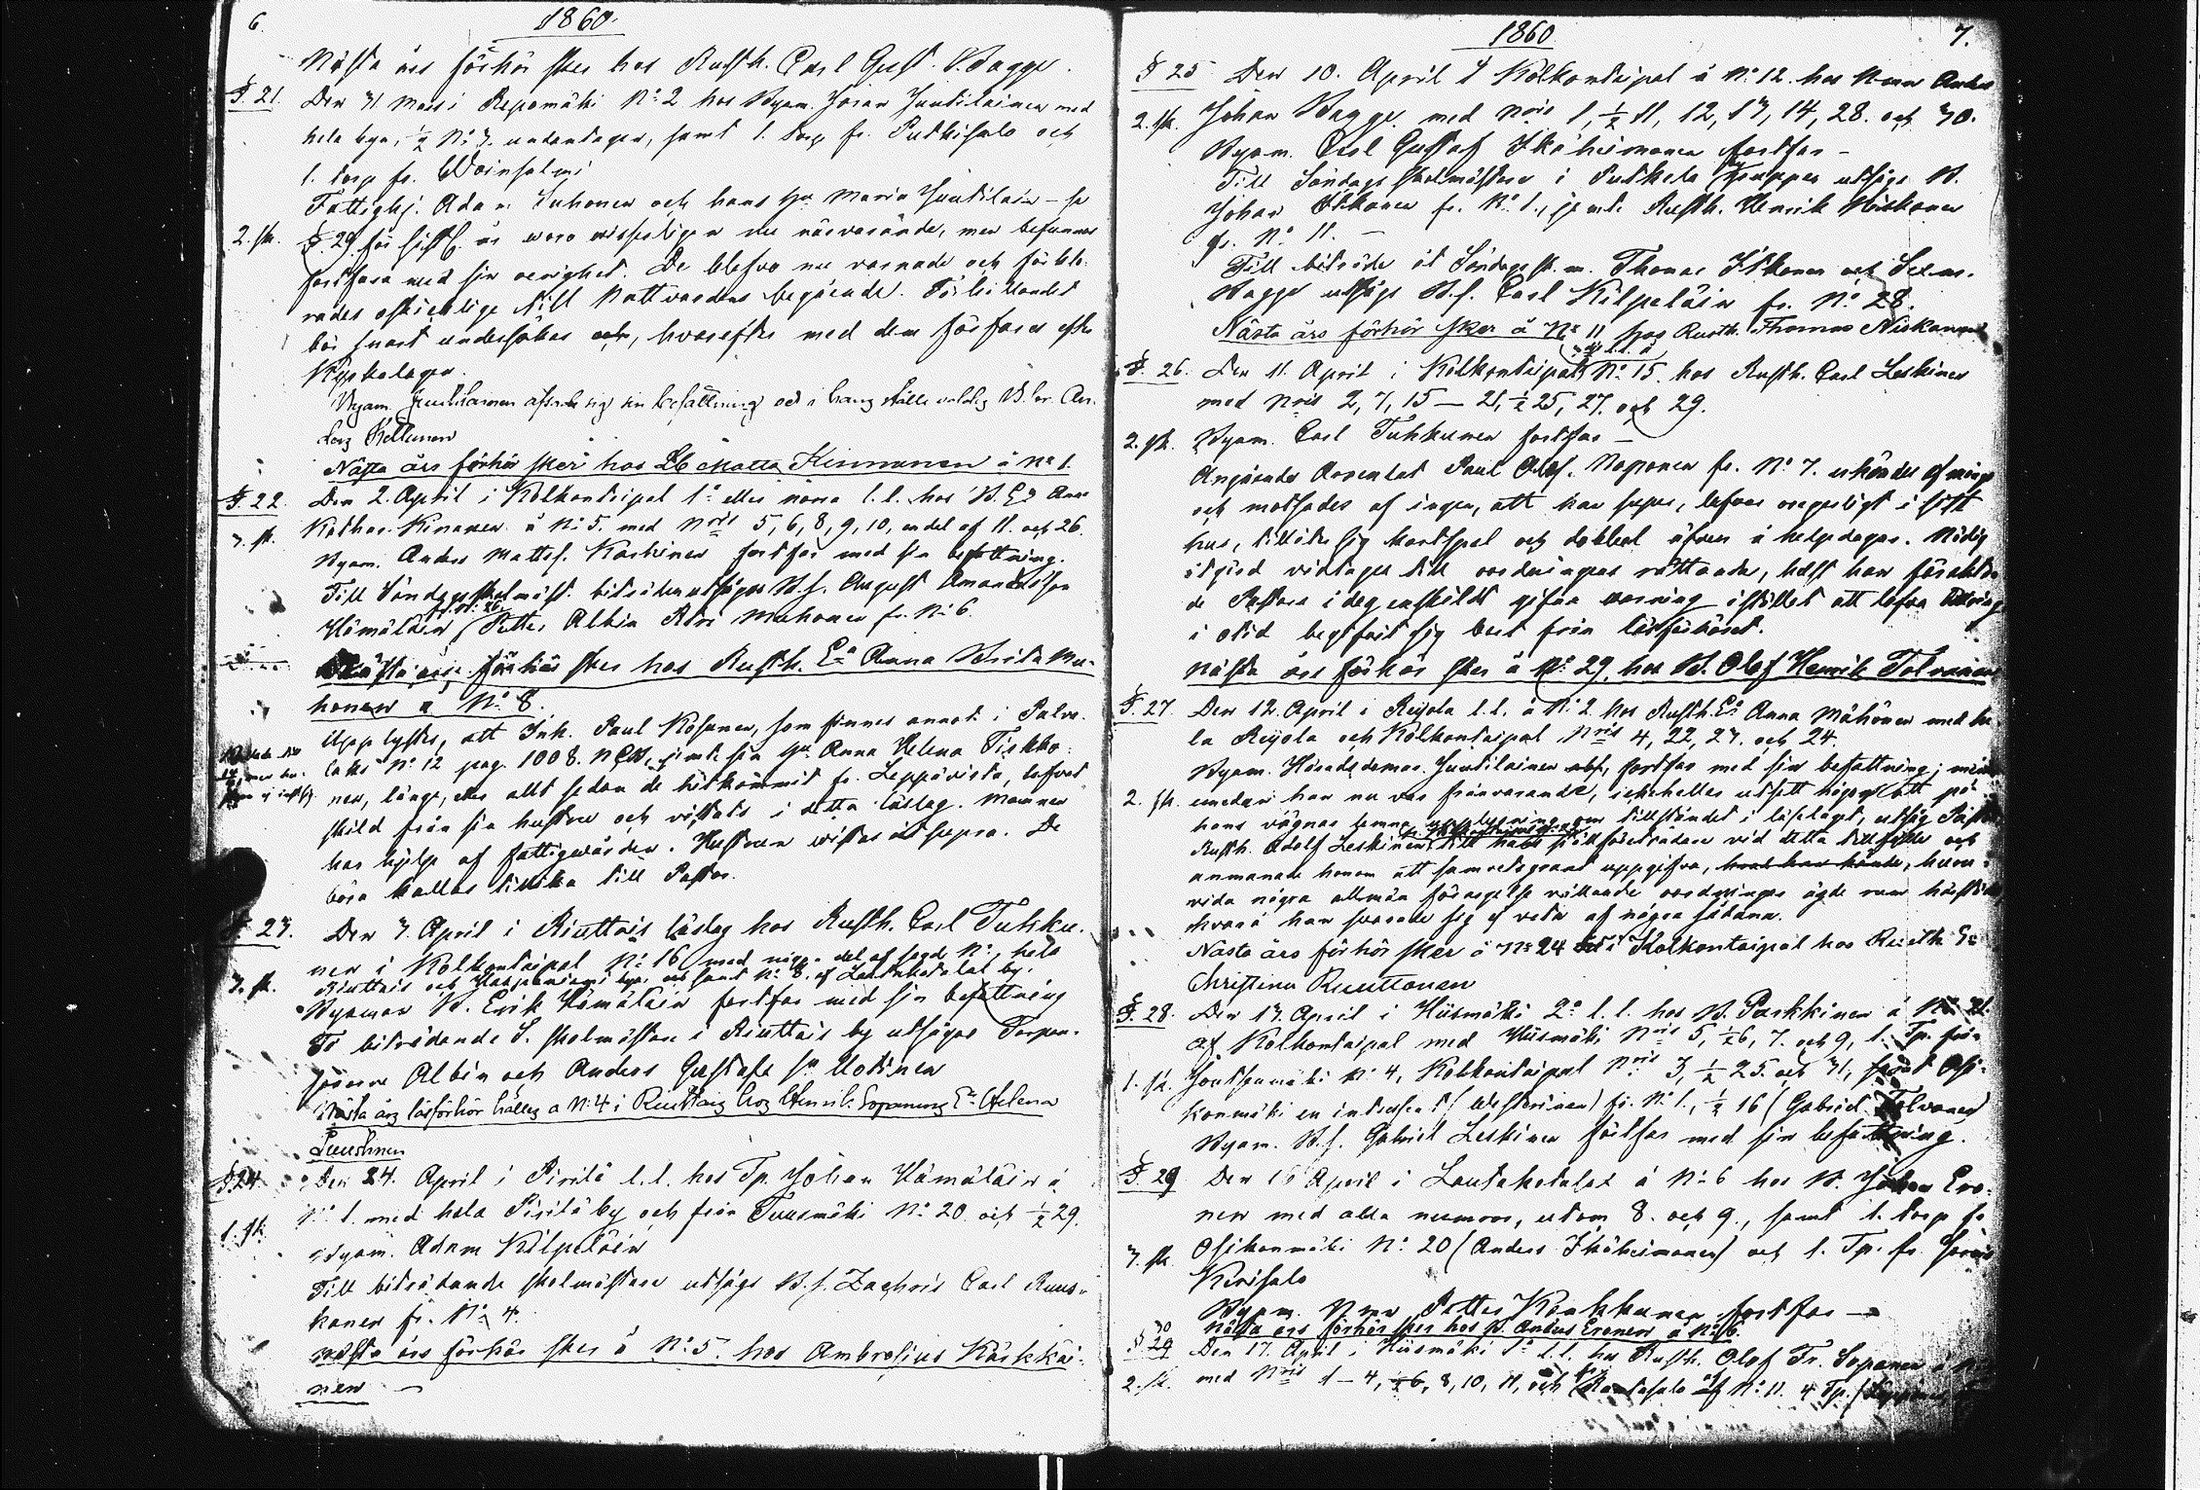 6.
1860.
Nästa års förhör sker hos Rusth. Carl Gust. Bagge.
§. 21. Den 31 Mars i Repomäki N:o 2 hos Byam. Johan Juutilainen med
hela byn, ½ N:o 3. undantagen, samt 1. torp fr. Putkisalo och
1. torp fr. Woinsalmi
Fattighj. Adam Inhonen och hans hu Maria Juutilain
2. sk. § 29. för sistl. år voro nu närvarande, men befunnos
fortfara med sin oenighet. De blefvo nu varnade och förkla-
rades oskicklige till Nattvardens begående. Förhållandet
bör snart undersökas och, hvarefter med dem förfares efter
Kyrkolagen.
Byam. Juutilainen afsade sig sin befattning och i hans ställe valdes
Kettunen
Nästa års förhör sker hos Lb Matts Kinnunen å No 1.
§. 22. Den 2. April i Kolkontaipal 1:o eller norra l. l. hos B. E:a Anna
3. sk. Kathar. Kinnunen å N:o 5. med N:ris 5, 6, 8, 9, 10, en del af 11. och 26
Byam. Anders Mattss. Koskinen fortfar med sin befattning.
Till Söndagsskolmäst. biträden utsågos B. s. August Amandusson
fr. N: 26
Hämäläin, Petter Albin Muhonen fr. N: 6.
Nästa års förhör sker hos Rusth. E:a Anna Brita Mu-
honen å N:o 8.
Upplystes, att Inh. Paul Kosunen, som finnes annot. i Palvo-
laks N:o 12 pag. 1008. jemte sin hu Anna Helena Tiekko-
nen, länge, eller allt sedan de hitkommit fr. Leppävirta, lefvat
skild från sin hustru och vistats i detta läslag. Mannen
har hjelp af fattigvården. Hustrun vistas ut supra. De
böra kallas tillika till Pastor.
§. 23. Den 3. April i Riuttais läslag hos Rusth. Carl Tuhku-
nen i Kolkontaipal N:o 16 med någon del af sagde N:o, hela
3. sk. Riuttais och by, samt N: 8. af Lautakotalat by.
Byaman B. Erik Hämäläin fortfar med sin befattning
Till biträdande S. skolmästare i Riuttais by utsågos Torpar-
sönerne Albin och Anders Gustafs sr Kotinen
Nästa års läsförhör hålles a N:4 i Riuttais hos Henrik Sopanens E:a Helena
Luustinen
§ 24. Den 24. April i Pisilä l. l. hos Tp. Johan Hämäläin å
1. sk. N:o 1. med hela Pisilä by och från Tuusmäki N:o 20. och ½ 29.
Byam. Adam Kilpeläin
Till biträdande skolmästare utsågs B. s. Zachris Carl Ruus-
kanen fr. N:o 4.
Nästa års förhör sker å N:o 5. hos Ambrosius Kärkkäi-
nen —
1860
7.
§ 25 Den 10. April i Kolkontaipal å N:o 12. hos Nmn Anders
2. sk. Johan Bagge med Nris 1, ½ 11, 12, 13, 14, 28. och 30.
Byam. Carl Gustaf Ikäheimonen fortfar –
Till Söndags skolmästare i Putkela gruppen utsågs B.
Johan Itkonen fr. N:o 1., jemte Rusth. Henrik Niskanen
fr. N:o 11. –
Till biträde åt Söndagssk. m. Thomas Itkonen och
Bagge utsågs B. s. Carl Kilpeläin fr. N:o 28.
Nästa års förhör sker å No 11 hos Rusth. Thomas Niskanen
§. 26. Den 11. April i Kolkontaipal N:o 15. hos Rusth. Carl Leskinen
med Nris 2, 7, 15 — 21, ½ 25, 27. och 29.
2. sk. Byam. Carl Tuhkunen fortfar –
Angående Paul Olof. Naponen fr. N:o 7. af många
och motsades af ingen, att han super, lefver oregerligt i sitt
hus, tillåter sig kortspel och dobbel äfven å helgedagar. Nödig
åtgärd vidtages till oordningens rättande, helst han försökta-
de Pastors i det enskildt gifna varning istället att lofva bättring
i otid begifvit sig bort från läsförhöret.
Nästa års förhör sker å N:o 29, hos B. Olof Henrik Tolvanen
§. 27 Den 12. April i Reijola l. l. å N:o 2 hos Rusth. E:a Anna Mähönen med he-
la Reijola och Kolkontaipal Nris 4, 22, 23. och 24.
Byam. Häradsdomar. Juutilainen fortfar med sin befattning; men
2. sk. emedan han nu var frånvarande, icke heller utsett någon att på
hans vägnar lemna upplysning om tillståndet i läslaget, utsåg Pastor
Rusth. Adolf Leskinen till hans ställföreträdare vid detta tillfälle och
anmanade honom att samvetsgrant uppgifva, huru-
vida några allmän förargelse väckande oordningar ägde rum härstädes
hvarå han svarade sig ej veta af några sådana.
Nästa års förhör sker å No 24 i Kolkontaipal hos Rusth. E:a
Christina Ruuttonen
§. 28. Den 13. April i Hiismäki 2:o l. l. hos B. Parkkinen å No 21.
af Kolkontaipal med Hiismäki Nris 5, ½ 6, 7. och 9, 1. Tp. från
1. sk. Joutsenmäki N:o 4, Kolkontaipal Nris 3, ½ 25. och 31, samt Osi-
konmäki en (Westerinen) fr. N:o 1., ½ 16 (Gabriel Tolvanen)
Byam. B. s. Gabriel Leskinen fortfar med sin befattning.
§. 29 Den 16 April i Lautakotalat å N:o 6 hos B. Johan Ero-
nen med alla nummror, utom 8. och 9., samt 1. torp fr.
3. sk. Osikonmäki N:o 20 (Anders Ikäheimonen) och 1. Tp. fr.
Kirisalo
Byam. Nmn Petter Kaukkunen fortfar –
Nästa års förhör sker hos B. Anders Eronen å N:o 6.
§ 30 Den 17. April i Hiismäki 1:o l. l. hos Rusth. Olof Fr. Sopanen å N:
2. sk. med Nris 1 – 4, ½ 6, 8, 10, 11, och Rantasalo af N:o 11. 4 Tp.